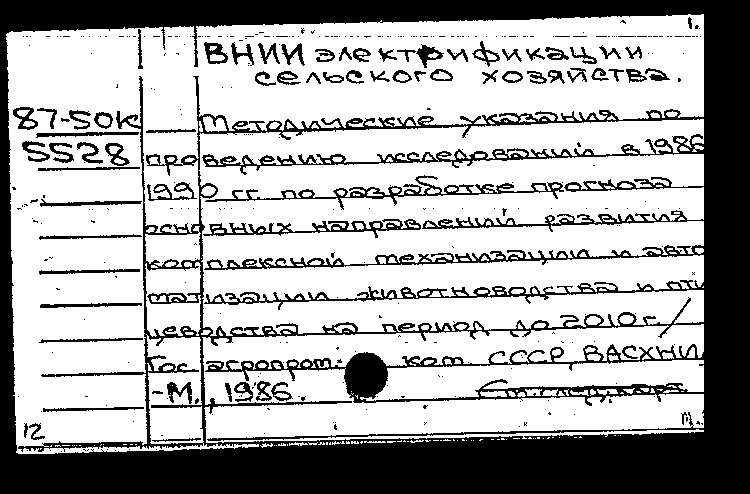 1.
ВНИИ электрификации
сельского хозяйства.
87-50к Методические указания по
5528 проведению исследований в 1986
1990 гг. по разработке прогноза
основных направлений развития
комплексной механизации и авто
матизации животноводства и пти
цеводства на период до 2010 г. /
Гос. агропром. ком СССР, ВАСХНИЛ
-М., 1986. См. след. карт
12